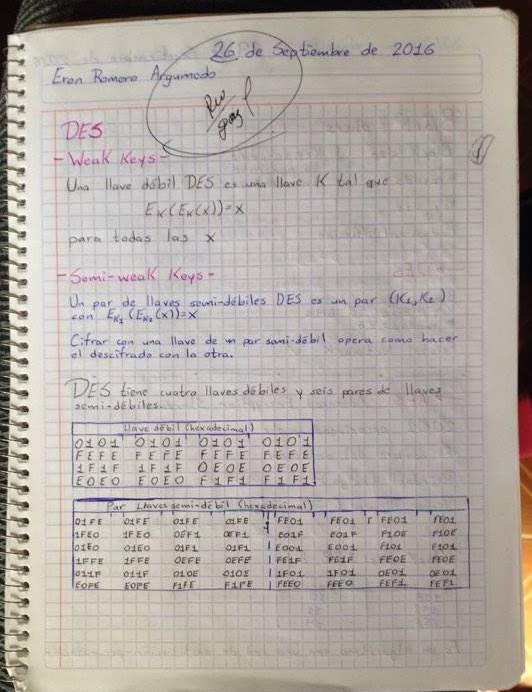 26 de Septiembre de 2016
Eron Romero Argumedo
Rev
DES
- Weak Keys -
Una llave débil DES es una llave K tal que
Eκ(Eκ(x))=x
para todas las x
- Semi-weak Keys -
Un par de llaves semi-débiles DES es un par (K1,K2)
con EK1(EK2(x))=x
Cifrar con una llave de un par semi-débil opera como hacer
el descifrado con la otra.
DES tiene cuatro llaves débiles y seis pares de llaves
semi-débiles.
Llave débil (hexadecimal)
0101 0101 0101 0101
FEFE FEFE FEFE FEFE
1F1F 1F1F 0E0E 0E0E
E0E0 E0E0 F1F1 F1F1
Par Llaves semi-débil (hexadecimal)
01FE 01FE 01FE 01FE FE01 FE01 FE01 FE01
1FE0 1FE0 0EF1 0EF1 E01F E01F F10E F10E
01E0 01E0 01F1 01F1 E001 E001 F101 F101
1FFE 1FFE 0EFE 0EFE FE1F FE1F FE0E FE0E
011F 011F 010E 010E 1F01 1F01 0E01 0E01
E0FE E0FE F1FE F1FE FEE0 FEE0 FEF1 FEF1